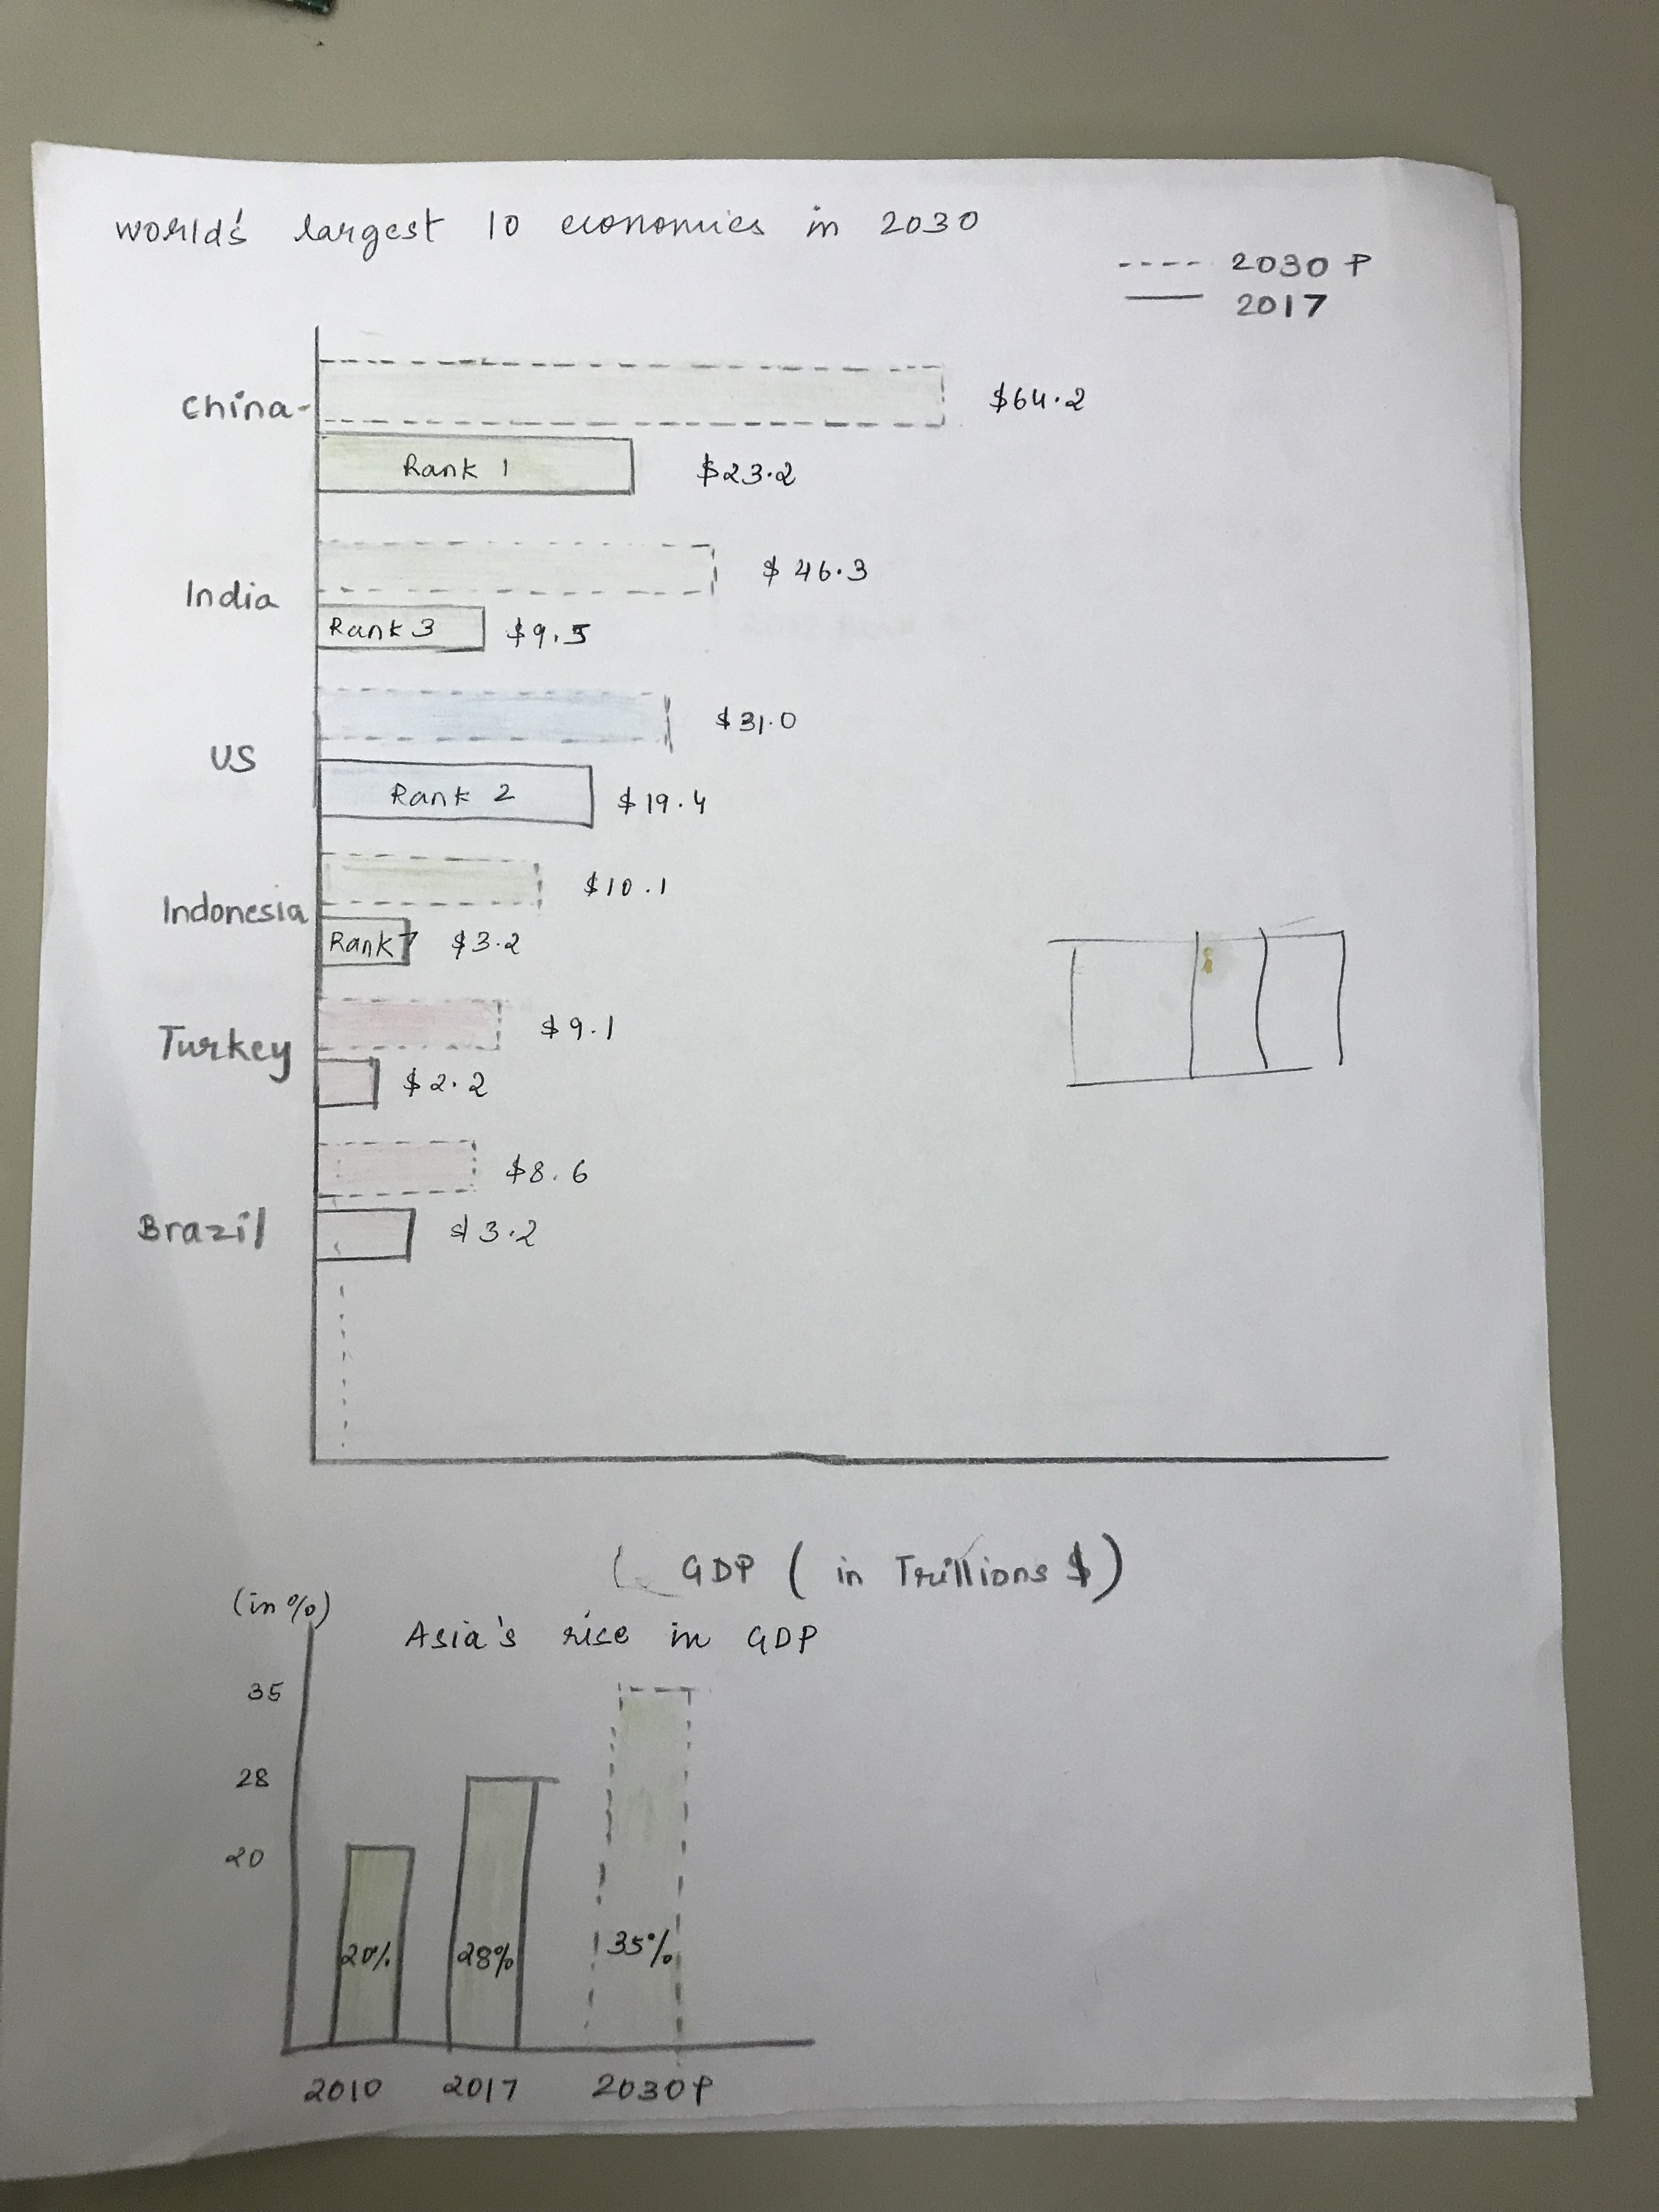 world's largest 10 economies in 2030
---- 2030 P
— 2017
China
$64.2
Rank 1 $23.2
$46.3
India
Rank 3 $9.5
$31.0
US
Rank 2 $19.4
$10.1
Indonesia
Rank 7 $3.2
$9.1
Turkey
$2.2
$8.6
Brazil
$3.2
GDP (in Trillions $)
(in %)
Asia's rise in GDP
35
28
20
20% 28% 35%
2010 2017 2030P